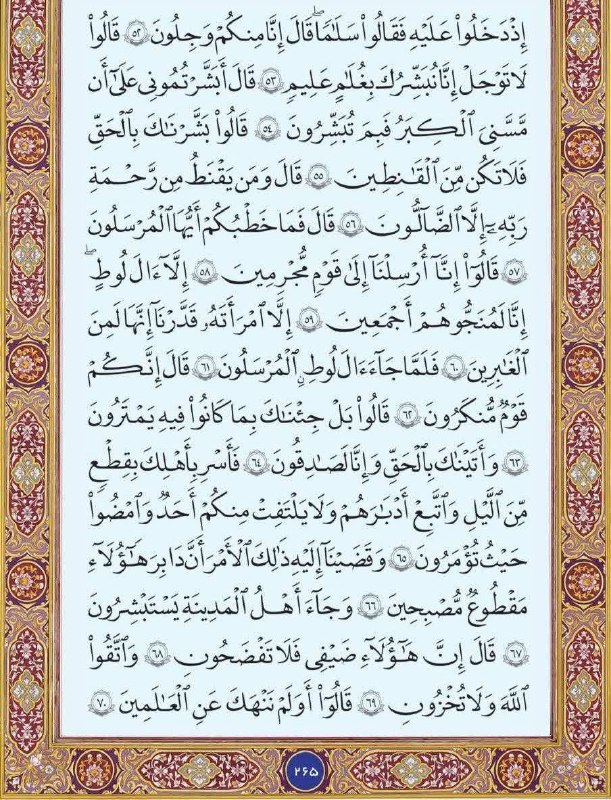 إِذْ دَخَلُوا۟ عَلَيْهِ فَقَالُوا۟ سَلَـٰمًا ۖ قَالَ إِنَّا مِنكُمْ وَجِلُونَ ﴿٥٢﴾ قَالُوا۟
لَا تَوْجَلْ إِنَّا نُبَشِّرُكَ بِغُلَـٰمٍ عَلِيمٍ ﴿٥٣﴾ قَالَ أَبَشَّرْتُمُونِى عَلَىٰٓ أَن
مَّسَّنِىَ ٱلْكِبَرُ فَبِمَ تُبَشِّرُونَ ﴿٥٤﴾ قَالُوا۟ بَشَّرْنَـٰكَ بِٱلْحَقِّ
فَلَا تَكُن مِّنَ ٱلْقَـٰنِطِينَ ﴿٥٥﴾ قَالَ وَمَن يَقْنَطُ مِن رَّحْمَةِ
رَبِّهِۦٓ إِلَّا ٱلضَّآلُّونَ ﴿٥٦﴾ قَالَ فَمَا خَطْبُكُمْ أَيُّهَا ٱلْمُرْسَلُونَ
﴿٥٧﴾ قَالُوٓا۟ إِنَّآ أُرْسِلْنَآ إِلَىٰ قَوْمٍ مُّجْرِمِينَ ﴿٥٨﴾ إِلَّآ ءَالَ لُوطٍ ۖ
إِنَّا لَمُنَجُّوهُمْ أَجْمَعِينَ ﴿٥٩﴾ إِلَّا ٱمْرَأَتَهُۥ قَدَّرْنَآ إِنَّهَا لَمِنَ
ٱلْغَـٰبِرِينَ ﴿٦٠﴾ فَلَمَّا جَآءَ ءَالَ لُوطٍ ٱلْمُرْسَلُونَ ﴿٦١﴾ قَالَ إِنَّكُمْ
قَوْمٌ مُّنكَرُونَ ﴿٦٢﴾ قَالُوا۟ بَلْ جِئْنَـٰكَ بِمَا كَانُوا۟ فِيهِ يَمْتَرُونَ
﴿٦٣﴾ وَأَتَيْنَـٰكَ بِٱلْحَقِّ وَإِنَّا لَصَـٰدِقُونَ ﴿٦٤﴾ فَأَسْرِ بِأَهْلِكَ بِقِطْعٍ
مِّنَ ٱلَّيْلِ وَٱتَّبِعْ أَدْبَـٰرَهُمْ وَلَا يَلْتَفِتْ مِنكُمْ أَحَدٌ وَٱمْضُوا۟
حَيْثُ تُؤْمَرُونَ ﴿٦٥﴾ وَقَضَيْنَآ إِلَيْهِ ذَٰلِكَ ٱلْأَمْرَ أَنَّ دَابِرَ هَـٰٓؤُلَآءِ
مَقْطُوعٌ مُّصْبِحِينَ ﴿٦٦﴾ وَجَآءَ أَهْلُ ٱلْمَدِينَةِ يَسْتَبْشِرُونَ
﴿٦٧﴾ قَالَ إِنَّ هَـٰٓؤُلَآءِ ضَيْفِى فَلَا تَفْضَحُونِ ﴿٦٨﴾ وَٱتَّقُوا۟
ٱللَّهَ وَلَا تُخْزُونِ ﴿٦٩﴾ قَالُوٓا۟ أَوَلَمْ نَنْهَكَ عَنِ ٱلْعَـٰلَمِينَ ﴿٧٠﴾
۲۶۵